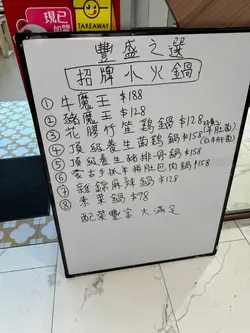 現已
TAKEAWAY
豐盛之選
招牌小火鍋
① 牛魔王 $188
② 豬魔王 $128
③ 花膠竹笙鷄鍋 $188
④ 頂級養生菌鷄鍋 $158
⑤ 頂級養生豬排骨鍋 $158
⑥ 蒙古手抓羊排肚包肉鍋 $158
⑦ 雜錦麻辣鍋 $128
⑧ 素菜鍋 $98
配菜豐富 大滿足